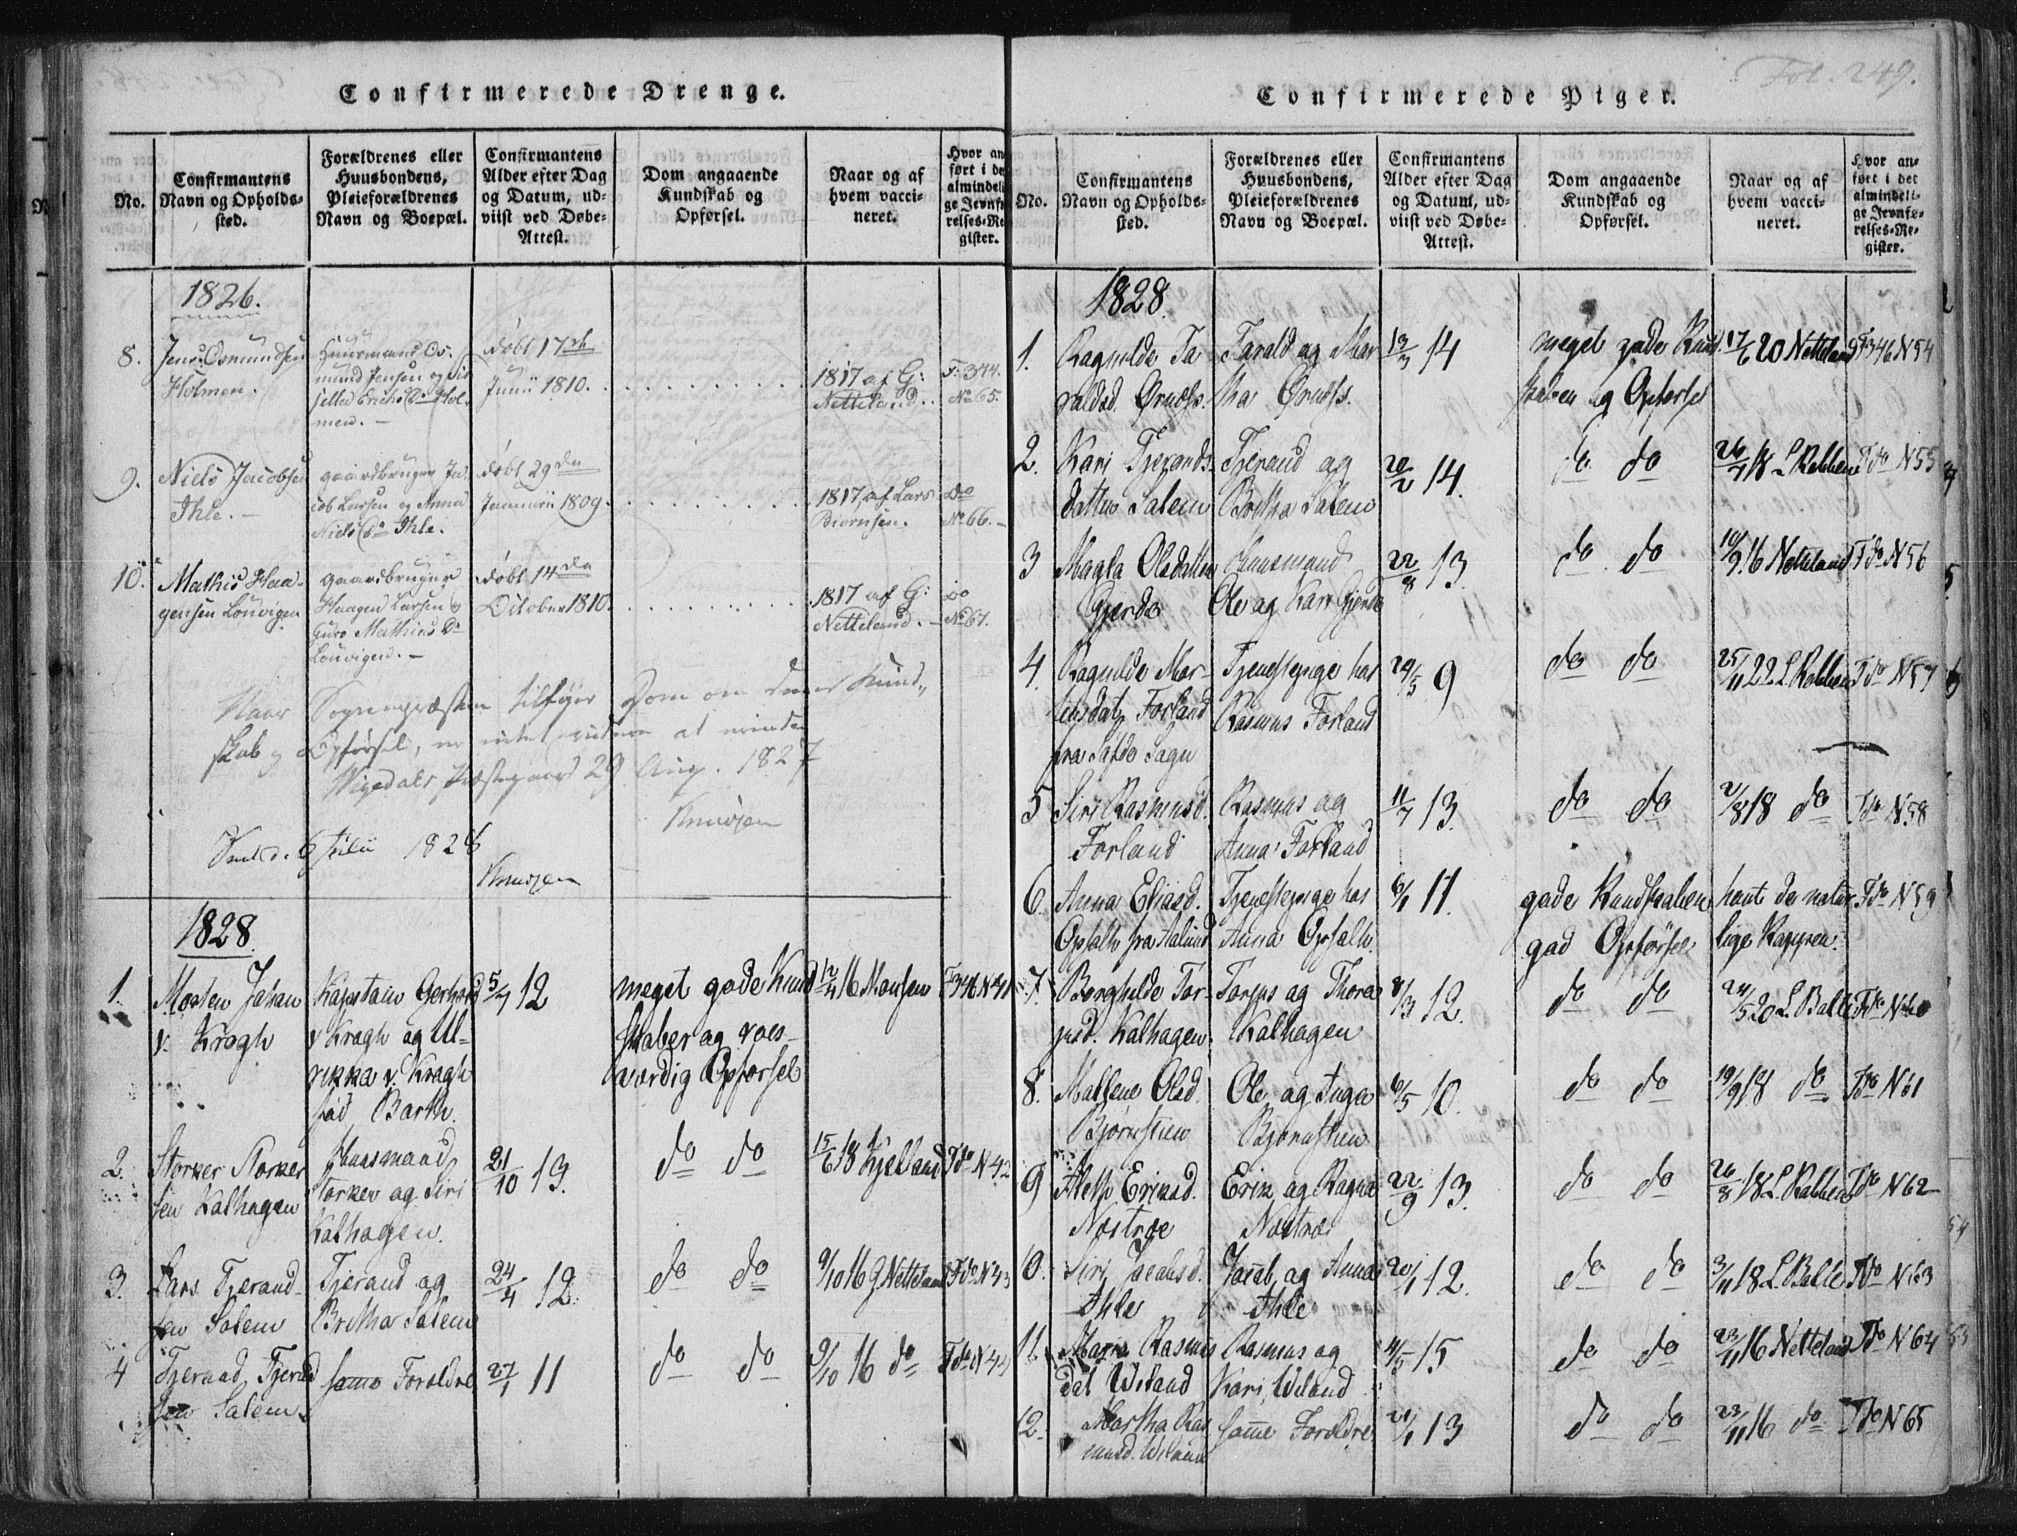 Fol. 249.
Confirmerede Drenge.
No.
Confirmantens Navn og Opholds-sted.
Forældrenes eller Huusbondens, Pleieforældrenes Navn og Boepæl.
Confirmantens Alder efter Dag og Datum, ud-viist ved Døbe-Attest.
Dom angaaende Kundskab og Opførsel.
Naar og af hvem vacci-neret.
Hvor an
ført i de
almindeli
ge Jevnfø
relses-Re
gister.
1826.
8.
Jens Osmundsen
Holmen.
Huusmand Os-
mund Jensen og
Erichs
Hol-
men.
døbt 17de
Junii 1810.
1817 af G:
Netteland.
F. 344.
No 65.
9.
Niels Jacobsen
Ihle.
gaardbruger Ja-
cob Larsen og Anna
Niels Dr Ihle.
døbt 29de
Januarii 1809.
1817 af Lars
Biørnsen.
Do
No 66.
10.
Mathis Haa-
gensen Louvigen
gaardbruger
Haagen Larsen
Guro Mathias Dr
Louvigen.
døbt 14de
October 1810.
1817 af G:
Netteland.
do
No 67.
Naar Sognepræsten tilføjer Dom om deres Kund-
skab og Opførsel, er intet videre at erindre
Præstegaard 29 Aug. 1827
Knudsen
6 Julii 1828
Knudsen
1828.
1.
Morten Johan
v. Krogh
Kapitain Gerhard
v Krogh og Ul-
rikka v. Krogh
fød Barth.
5/7 12
meget gode Kund
skaber og roes-
værdig Opførsel
12/4 16 Monsen
F346 N 41
2.
Storker Storker
sen Kalhagen
Huusmand
Storker og Siri
Kalhagen.
21/10 13.
do do
15/6 18 Kjelland
F do N 42
3.
Lars Tjerand-
sen Salem
Tjerand og
Britha Salem
24/4 12.
do do
9/10 16 G. Netteland
F do N 43
4
Tjeraad Tjerand
sen Salem
samme Forældre
27/1 11
do do
9/10 16 do
F do N 44
Confirmerede Piger.
No.
Confirmantens Navn og Opholds-sted.
Forældrenes eller Huusbondens, Pleieforældrenes Navn og Boepæl.
Confirmantens Alder efter Dag og Datum, ud-viist ved Døbe-Attest.
Dom angaaende Kundskab og Opførsel.
Naar og af hvem vacci-neret.
Hvor an-ført i det almindeli-ge Jevnfø-relses-Re-gister.
1828.
1.
Ragnilde Ta
raldsd.
Tarald og Mar
tha
13/3 14
meget gode Kund
skaber og Opførsel
17/6 20 Netteland
F346 N 54
2.
Kari Tjerands-
datter Salem
Tjerand og
Britha Salem
20/2 14.
do do
26/7 18 L
F do N 55
3
Magla Olsdatter
Gjerde
Huusmand
Ole og Kari Gjerde
22/8 13.
do do
10/9 16 Netteland
F do N 56
4.
Ragnilde Mor-
tensdat. Forland
fra Sogn
Tjenestepige hos
Rasmus Forland
24/5 9
do do
25/11 22 L
F do N 57
5
Siri Rasmusd.
Forland
Rasmus og
Anna Forland
11/7 13.
do do
2/8 18 do
F do N 58
6
Anna Eliasd.
Opsalh fra
Tjenestepige hos
Anna Opsalh
6/1 11.
gode Kundskaber
god Opførsel
havt de natur
lige Kopper.
F do N 59
7.
Borghilde Tor-
jusd. Kalhagen
Torjus og Thora
Kalhagen
8/3 12.
do do
24/5 20 L Balle
F do N 60
8.
Mallene Olsd.
Bjørnstien
Ole og Inga
Bjørnstien
6/5 10.
do do
19/9 18 do
F do N 61
9
Aleth Eriksd.
Næstrøe
Erik og Ragna
Næstrøe
22/9 13.
do do
26/8 18 L
F do N 62
10.
Siri Jacobsd.
Ihle
Jacob og Anna
Ihle
20/1 12.
do do
3/11 18 L Balle
F do N 63
11.
Maria Rasmus
dat Wiland
Rasmus og
Kari Wiland
4/5 15
do do
23/11 16 Netteland
F do N 64
12.
Martha Ras
musd. Wiland
samme Forældre
21/1 13
do do
23/11 16 do
F do N 65